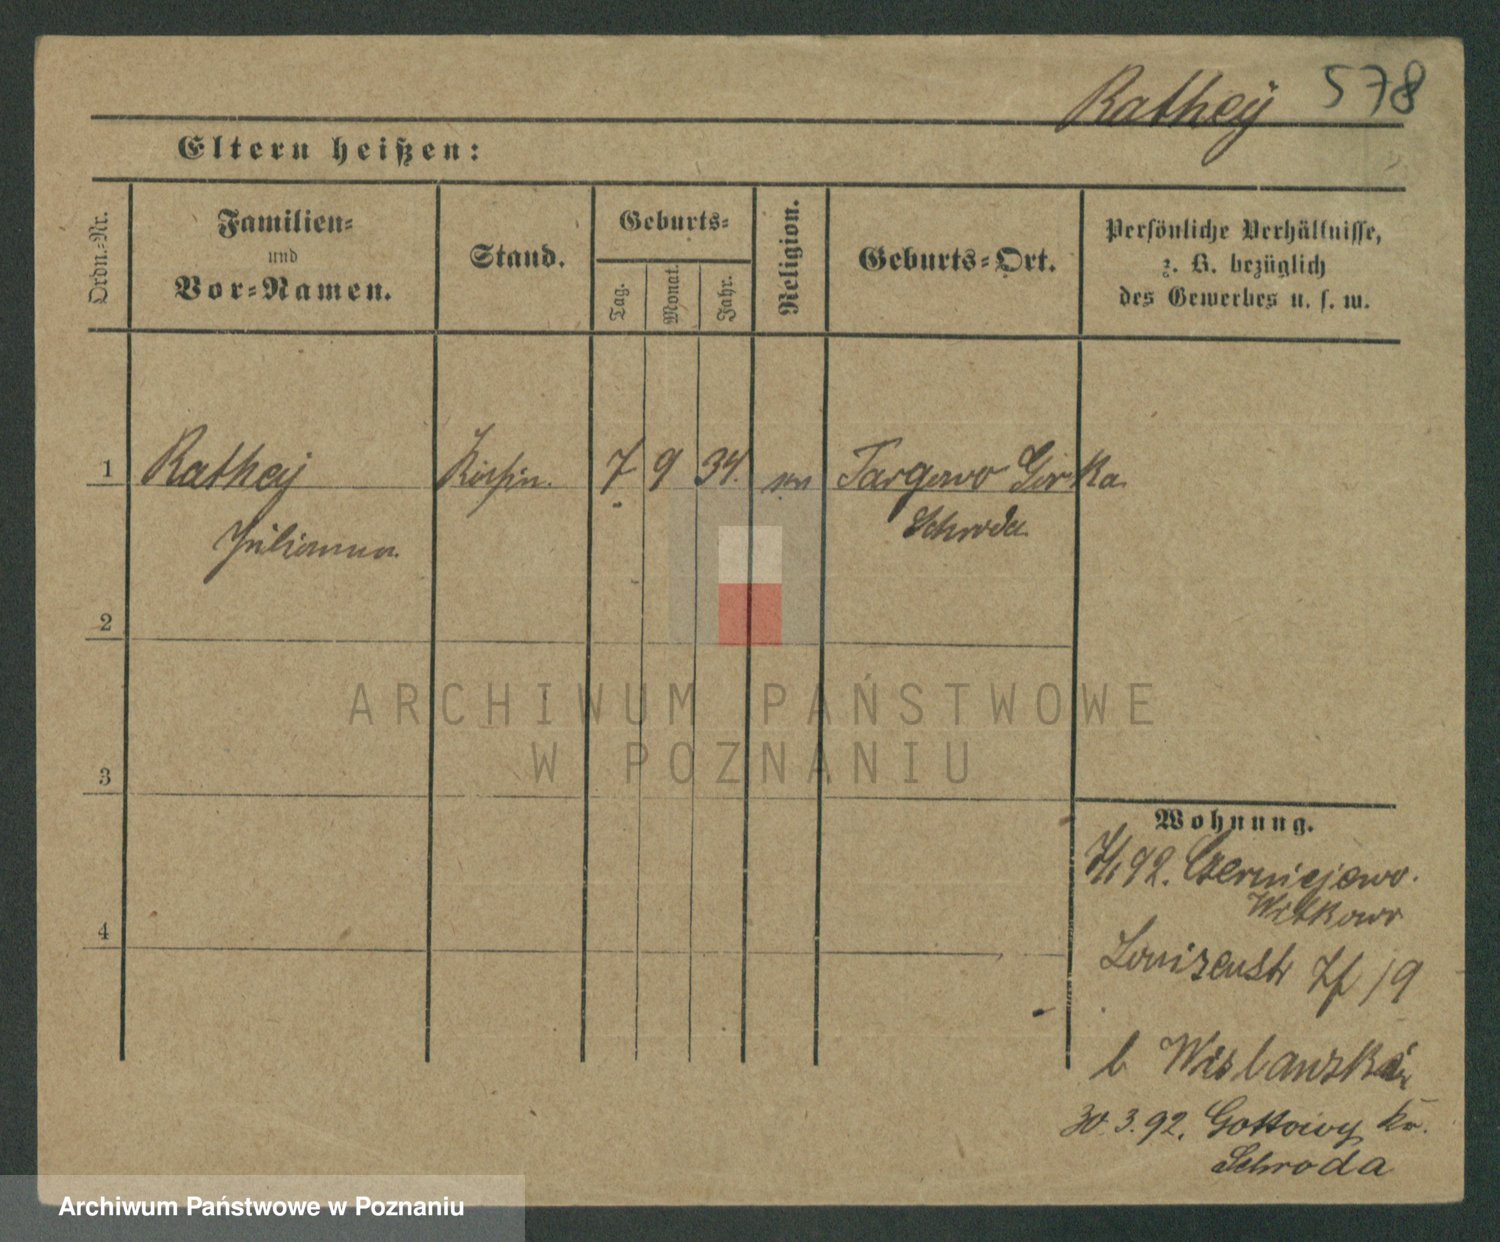 Rathey 578
Eltern heißen:
Ordn.-Nr.
Familien-
und
Vor-Namen.
Stand.
Geburts-
Tag.
Monat.
Jahr.
Religion.
Geburts-Ort.
Persönliche Verhältnisse,
z. B. bezüglich
des Gewerbes u. s. w.
1 Rathey Köchin. 7 9 34. Targowo Górka
Julianna Schroda
2
3
4
ARCHIWUM PAŃSTWOWE
W POZNANIU
Wohnung.
7/1 92. Czerniejewo.
Witkowo
Louisenstr 19
b
30.3.92. Kr.
Schroda
Archiwum Państwowe w Poznaniu